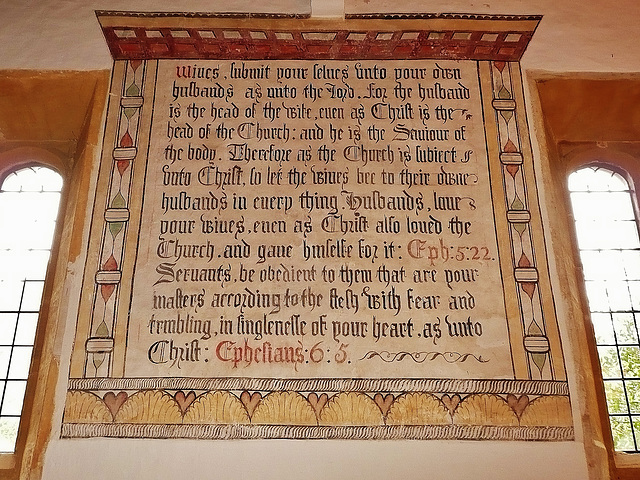 Wiues, submit your selues vnto your own
husbands as unto the Lord. For the husband
is the head of the wife, euen as Christ is the
head of the Church: and he is the Saviour of
the body. Therefore as the Church is subiect
vnto Christ, so let the wiues bee to their owne
husbands in euery thing. Husbands, loue
your wiues, euen as Christ also loued the
Church, and gaue himselfe for it: Eph: 5.22.
Seruants, be obedient to them that are your
masters according to the flesh with fear and
trmbling, in singlenesse of your heart, as vnto
Christ: Ephesians: 6: 5.